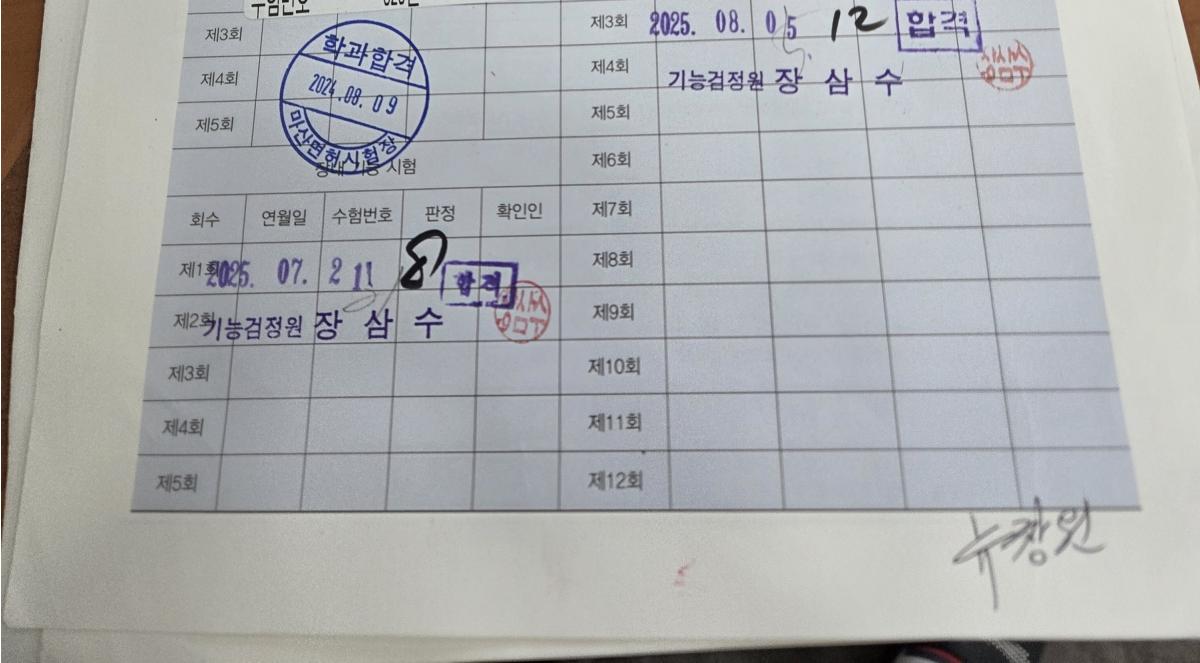 수험번호
제3회
제4회
제5회
학과합격
2024.08.09
마산면허시험장
장내기능 시험
회수 연월일 수험번호 판정 확인인
제1회 2025. 07. 2 11 8 합격
제2회 기능검정원 장 삼 수
제3회
제4회
제5회
제3회 2025. 08. 05 12 합격
제4회 기능검정원 장 삼 수
제5회
제6회
제7회
제8회
제9회
제10회
제11회
제12회
뉴창원